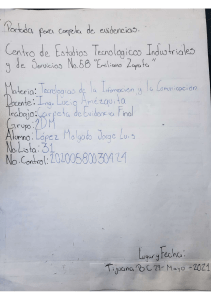 Portada para carpeta de evidencias.
Centro de Estudios Tecnologicos Industriales
y de Servicios No.58 "Emiliano Zapata"
Materia: Tecnologias de la Informacion y la Comunicacion
Docente: Lucio Amezquita
Trabajo: Carpeta de Evidencia Final
Grupo: 2DM
Alumno: López Melgado Jorge Luis
No.Lista: 31
No.Control:
Lugar y Fecha:
Tijuana, B.C. Mayo-2021